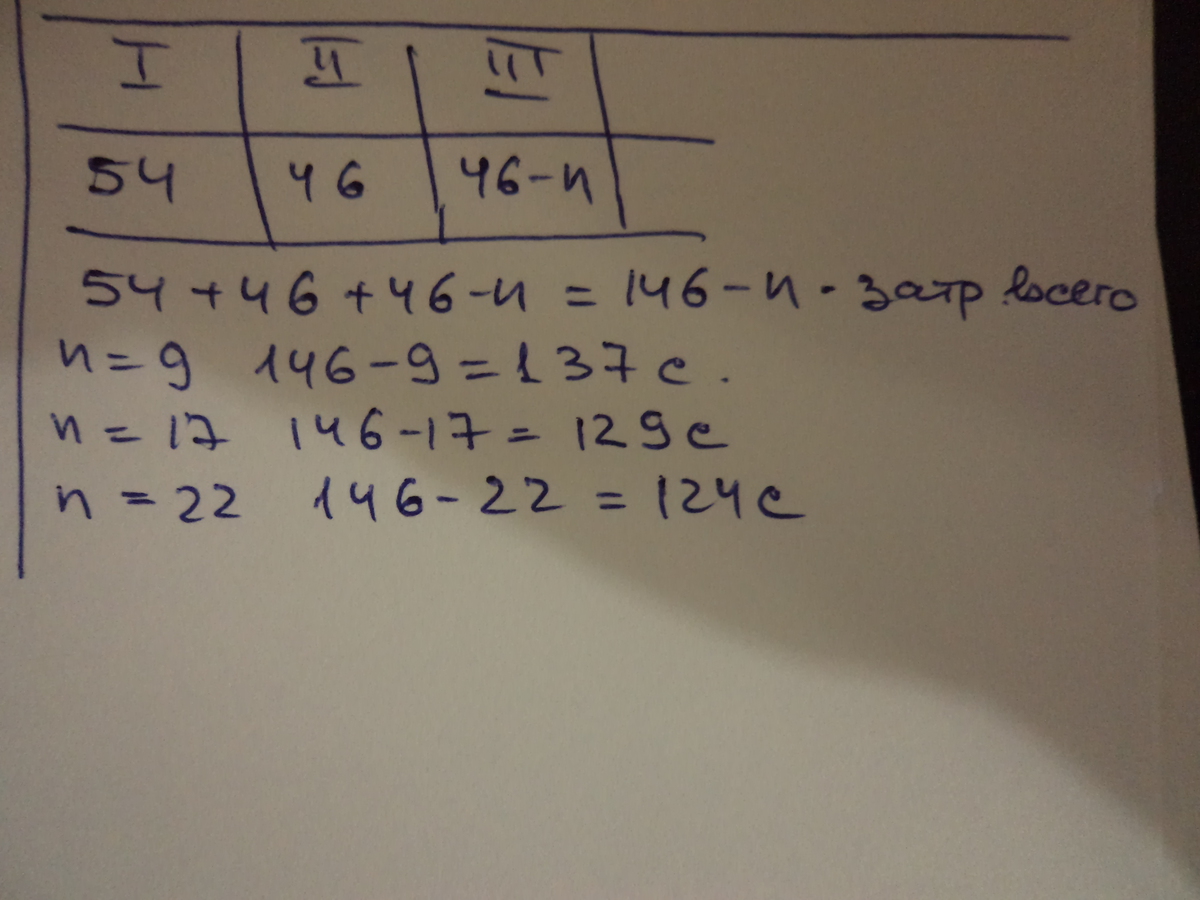 I II III
54 46 46-n
54+46+46-n = 146-n - затр. всего
n=9 146-9=137 с.
n=17 146-17=129с
n=22 146-22=124с